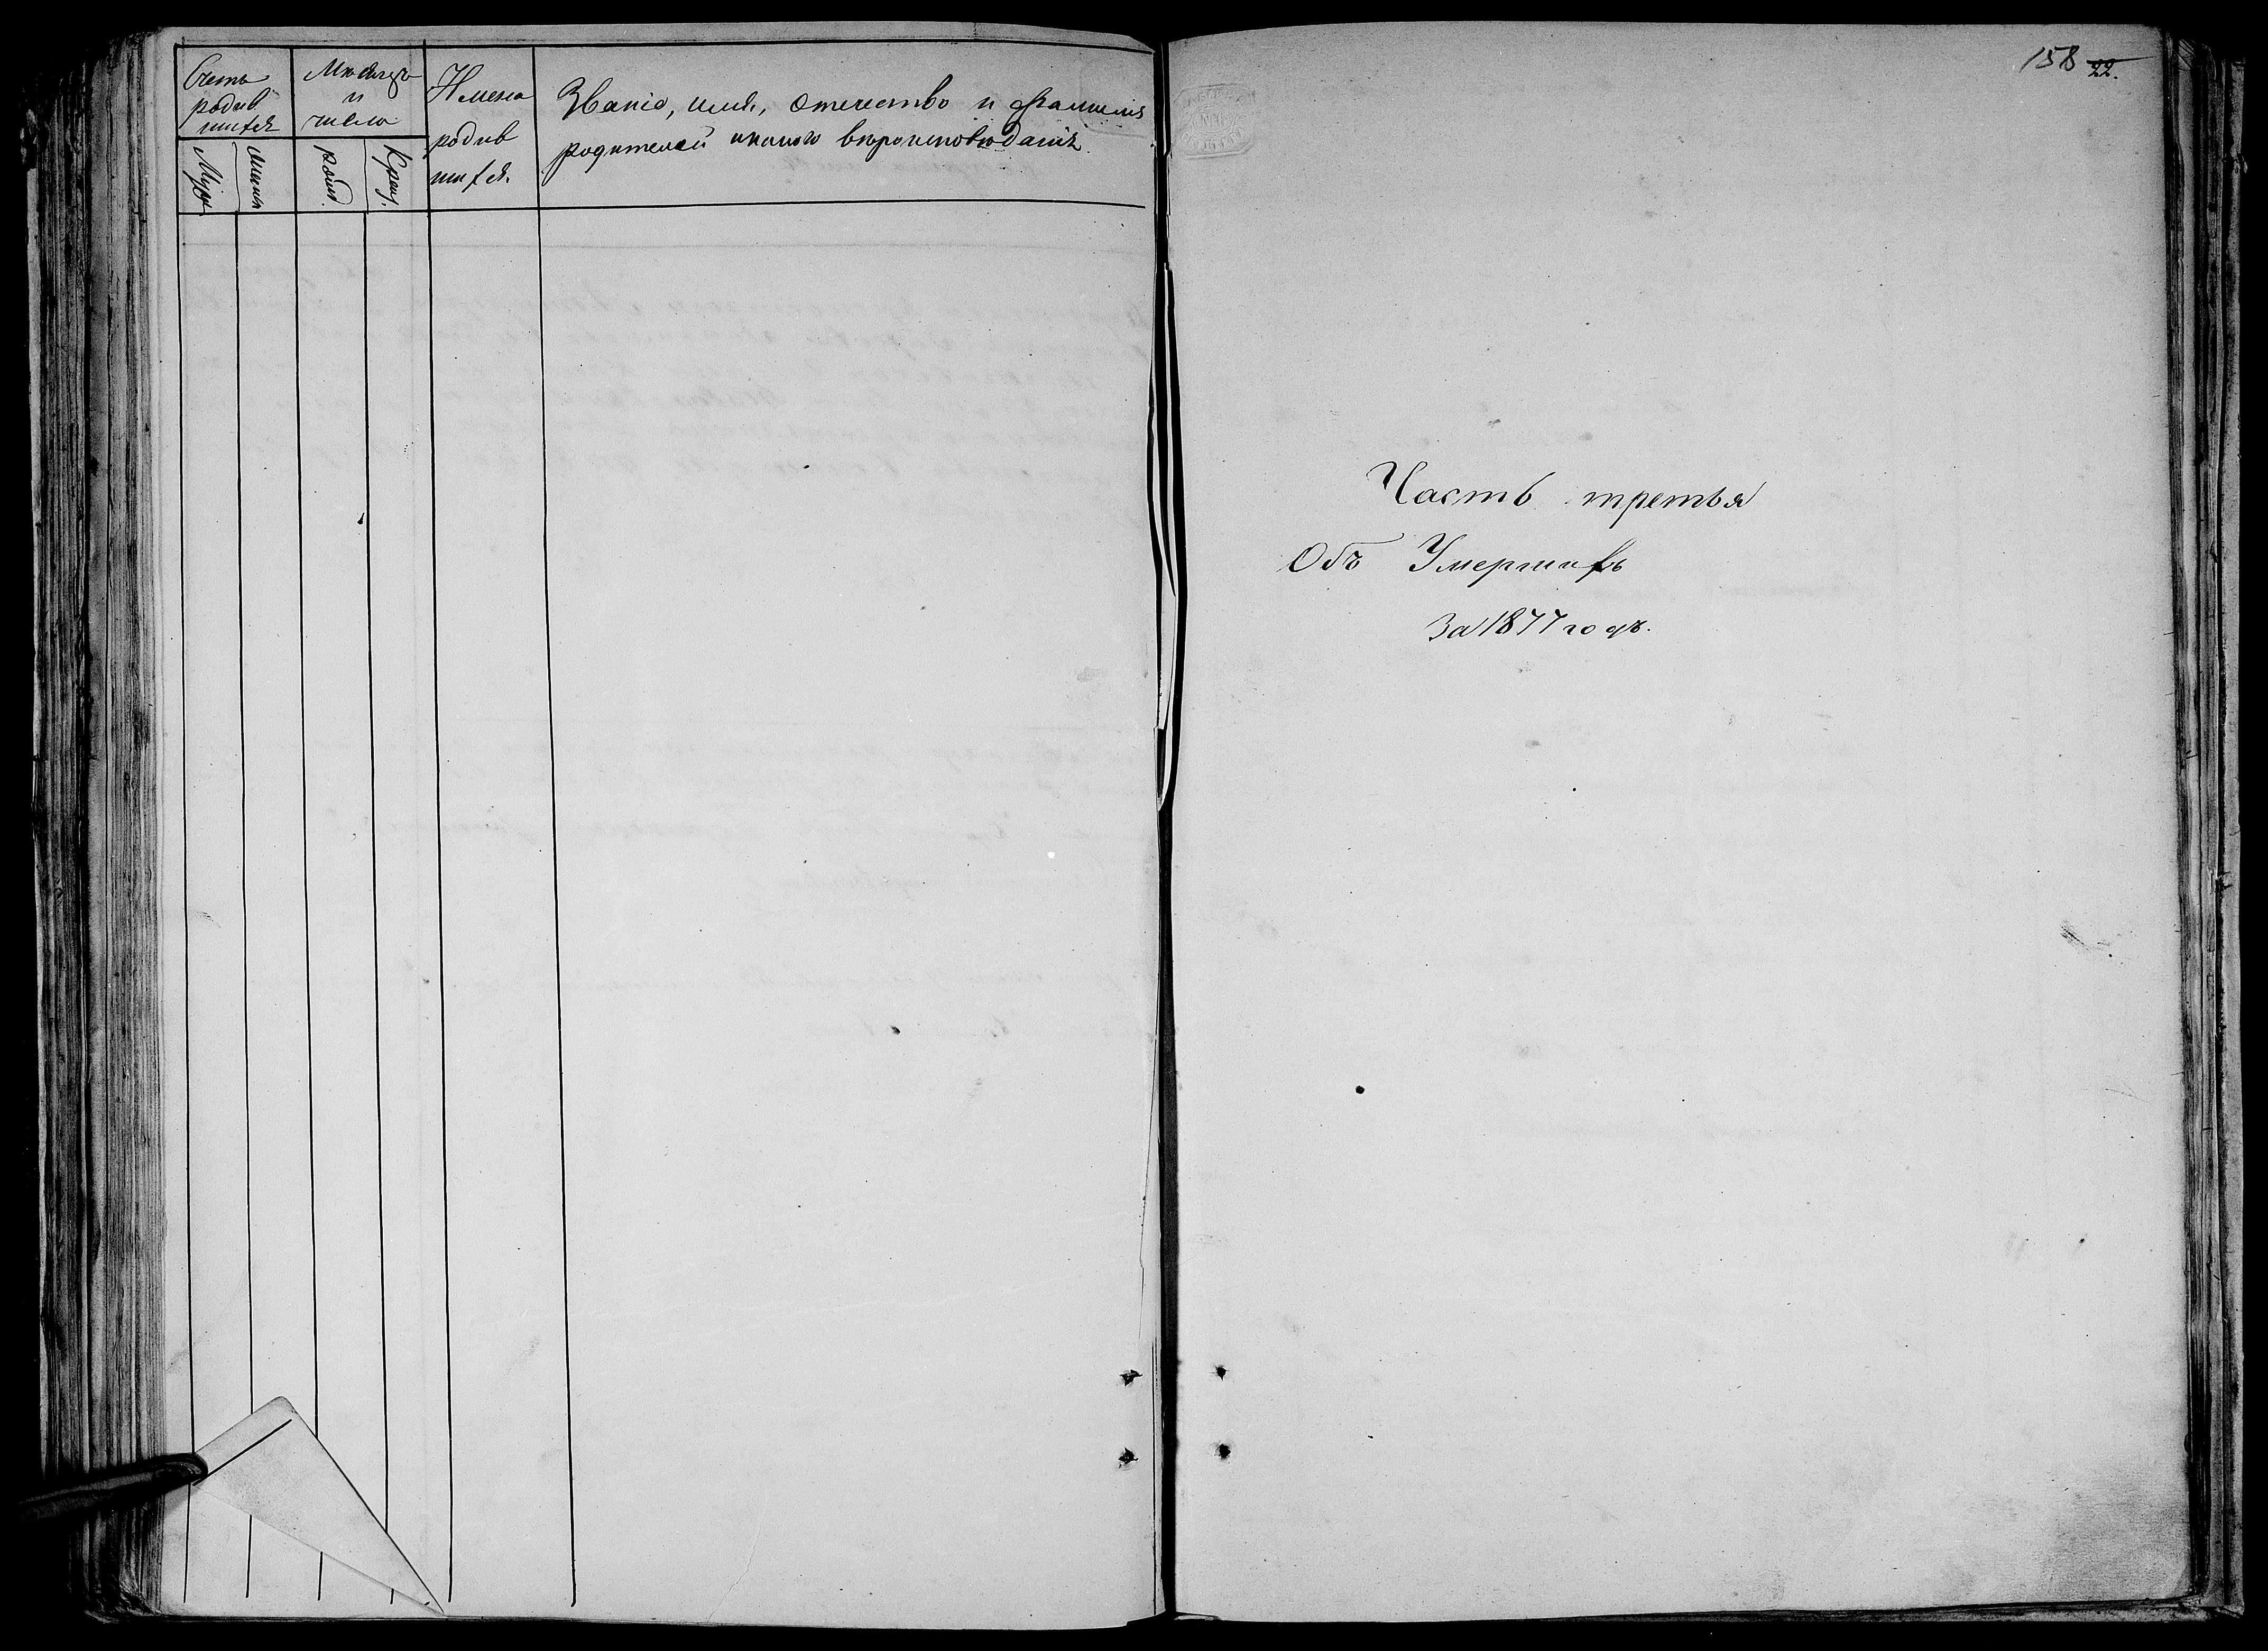 Счетъ
родив
шихся
Мѣсяцъ
и
число
Имена
родив
шихся.
Званіе, имя, отечество и фамилія
родителей и какого вѣроисповѣданія.
Муж.
женск
рожд.
Крещ.
158 22.
Часть третья
Объ Умершихъ
За 1877 годъ.